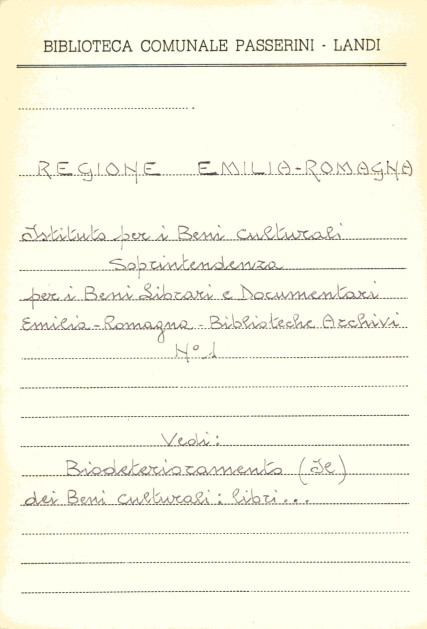 BIBLIOTECA COMUNALE PASSERINI - LANDI
REGIONE EMILIA-ROMAGNA
Istituto per i Beni Culturali
Soprintendenza
per i Beni Librari e Documentari
Emilia-Romagna - Biblioteche Archivi
N° 1
Vedi:
Biodeterioramento (Il)
dei Beni Culturali: libri...